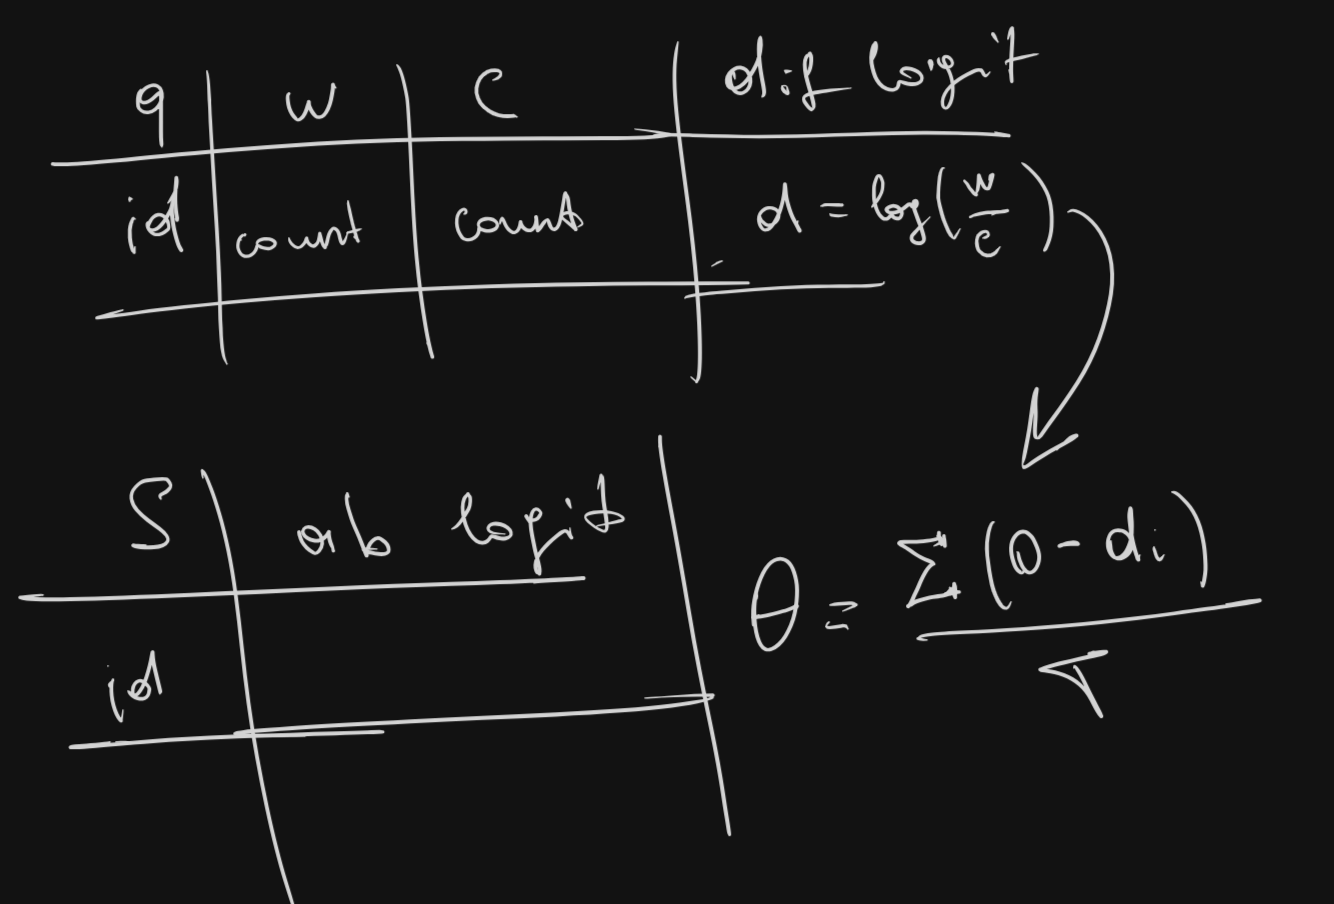 q w C dif logit
id count count d = log(w/c)
S ab logit
θ = Σ(0 - di) / T
id